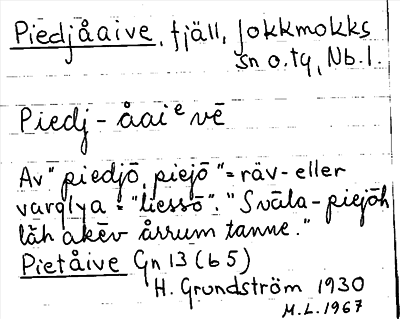 Piedjåaive, fjäll, Jokkmokks
sn o. tg, Nb. l.
Piedj-åaiᵉvē
Av "piedjō, piejō" = räv- eller
varglya = "liessō". "Svāla-piejōh
lǟh akēv årrum tanne."
Pietåive Gn 13 (b 5)
H. Grundström 1930
M.L. 1967